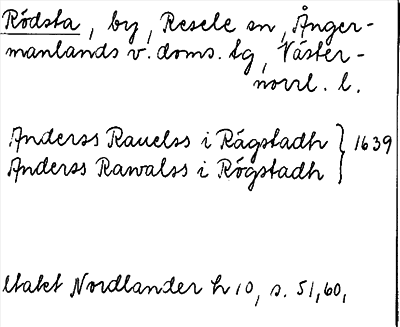 Rödsta, by, Resele sn, Ånger-
manlands v. doms. tg, Väster-
norrl. l.
Anderss Rauelss i Rägstadh } 1639
Anderss Rawalss i Rögstadh
Nordlander h 10, s. 51, 60,